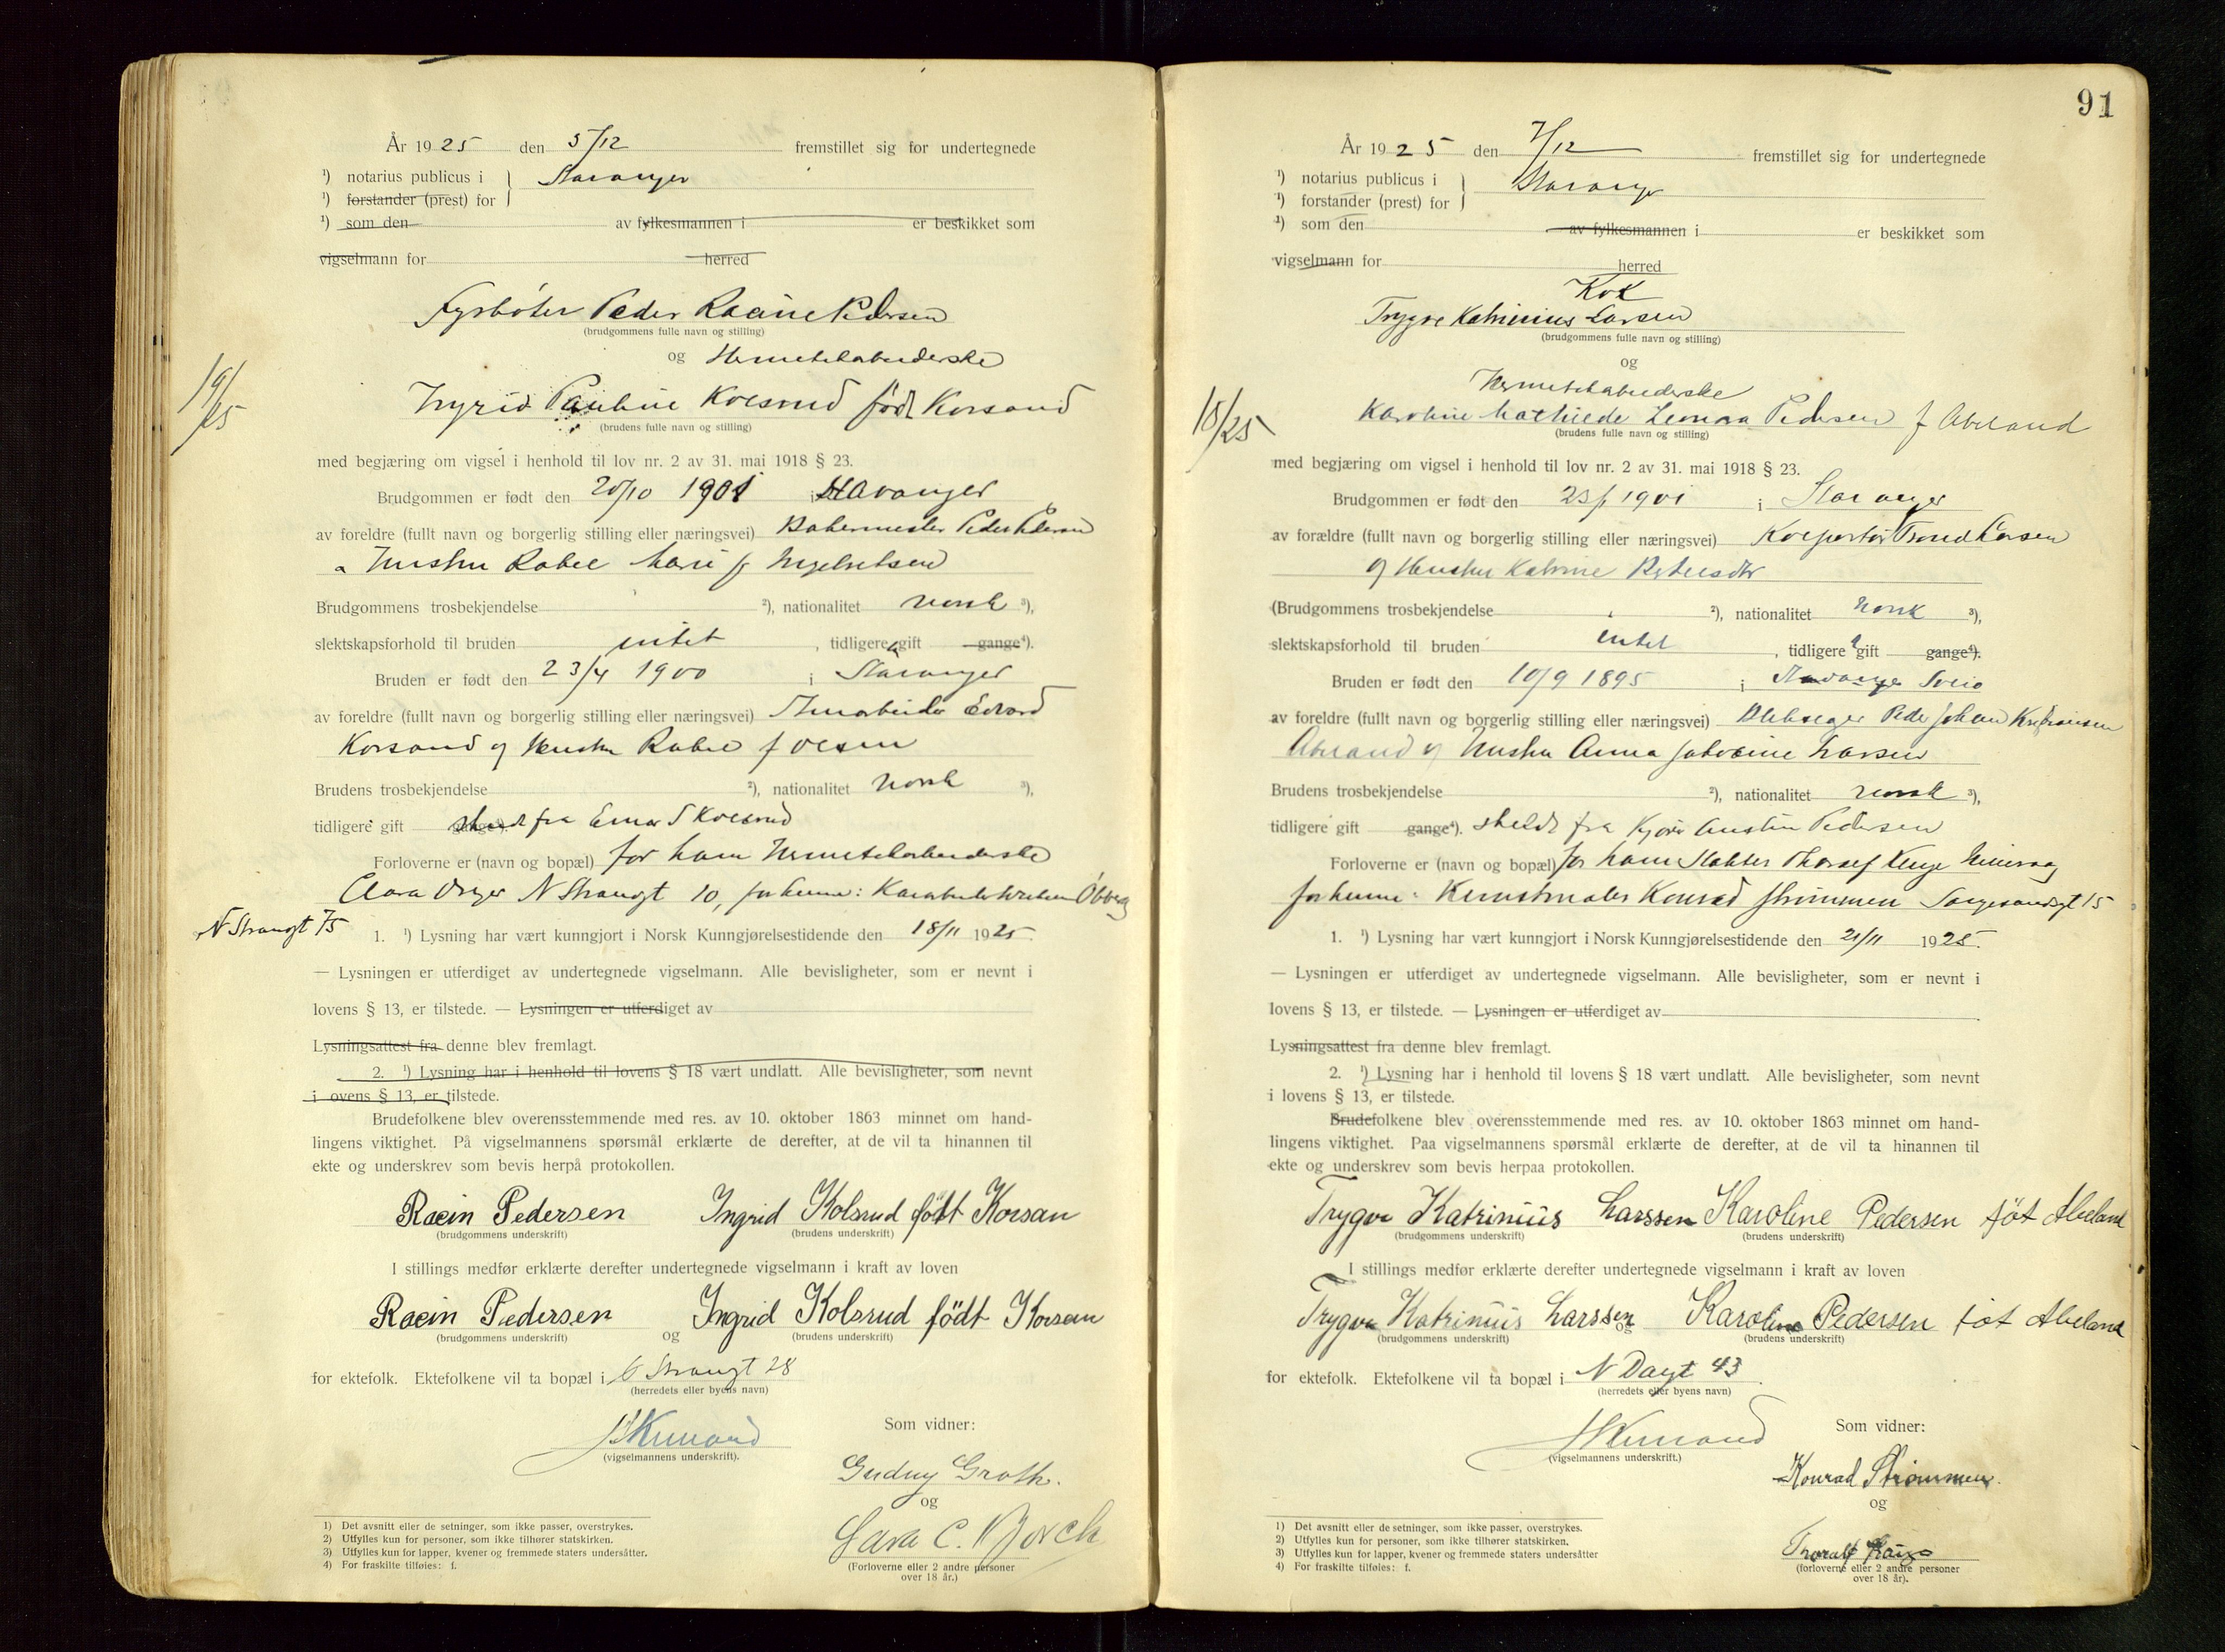 År 1925 den 5/12 fremstillet sig for undertegnede
¹) notarius publicus i } Stavanger
¹) forstander (prest) for
¹) som den av fylkesmannen i er beskikket som
vigselmann for herred
Fyrbøter Peder Racine Pedersen
(brudgommens fulle navn og stilling)
og Hermetikarbeiderske
19/25
Ingrid Pauline Kolsrud født Korsand
(brudens fulle navn og stilling)
med begjæring om vigsel i henhold til lov nr. 2 av 31. mai 1918 § 23.
Brudgommen er født den 20/10 1901 i Stavanger
av foreldre (fullt navn og borgerlig stilling eller næringsvei) Bakermester Peder Pedersen
Hustru Rakel Marie f
Brudgommens trosbekjendelse ²), nationalitet norsk ³),
slektskapsforhold til bruden intet , tidligere gift gange⁴).
Bruden er født den 23/4 1900 i Stavanger
av foreldre (fullt navn og borgerlig stilling eller næringsvei) Edvard
Korsand og Hustru Rakel f Olsen
Brudens trosbekjendelse ²), nationalitet norsk ³),
tidligere gift gange⁴). skilt fra Einar Kolsrud
Forloverne er (navn og bopæl) for ham Hermetikarbeiderske
Clara N Strandgt 10, for henne:
N Strandgt 75
1. ¹) Lysning har vært kunngjort i Norsk Kunngjørelsestidende den 18/11 1925.
— Lysningen er utferdiget av undertegnede vigselmann. Alle bevisligheter, som er nevnt i
lovens § 13, er tilstede. — Lysningen er utferdiget av
Lysningsattest fra denne blev fremlagt.
2. ¹) Lysning har i henhold til lovens § 18 vært undlatt. Alle bevisligheter, som nevnt
i ovens § 13, er tilstede.
Brudefolkene blev overensstemmende med res. av 10. oktober 1863 minnet om hand-
lingens viktighet. På vigselmannens spørsmål erklærte de derefter, at de vil ta hinannen til
ekte og underskrev som bevis herpå protokollen.
Racin Pedersen Ingrid Kolsrud født Korsan
(brudgommens underskrift) (brudens underskrift)
I stillings medfør erklærte derefter undertegnede vigselmann i kraft av loven
Racin Pedersen Ingrid Kolsrud födt Korsan
(brudgommens underskrift) og (brudens underskrift)
for ektefolk. Ektefolkene vil ta bopæl i Strandgt 28
(herredets eller byens navn)
(vigselmannens underskrift).
Som vidner:
Gudny Groth.
og
Clara C.
(Forloverne eller 2 andre personer
over 18 år.)
1) Det avsnitt eller de setninger, som ikke passer, overstrykes.
2) Utfylles kun for personer, som ikke tilhører statskirken.
3) Utfylles kun for lapper, kvener og fremmede staters undersåtter.
4) For fraskilte tilføies: f.
91
År 1925 den 7/12 fremstillet sig for undertegnede
¹) notarius publicus i } Stavanger
¹) forstander (prest) for
¹) som den av fylkesmannen i er beskikket som
vigselmann for herred
Kok
Trygve Katrinius Larsen
(brudgommens fulle navn og stilling)
og
Hermetikarbeiderske
18/25
Karoline Mathilde Leonora Pedersen f Abeland
(brudens fulle navn og stilling)
med begjæring om vigsel i henhold til lov nr. 2 av 31. mai 1918 § 23.
Brudgommen er født den 23/1 1901 i Stavanger
av forældre (fullt navn og borgerlig stilling eller næringsvei) Kolportør Trond Larsen
og Hustru Katrine
(Brudgommens trosbekjendelse ²), nationalitet norsk ³),
slektskapsforhold til bruden intet , tidligere gift gange⁴).
Bruden er født den 10/9 1895 i Stavanger Sveio
av foreldre (fullt navn og borgerlig stilling eller næringsvei) Peder Johan Kristiansen
Abeland og Hustru Anna Larsen
Brudens trosbekjendelse ²), nationalitet norsk ³),
tidligere gift gange⁴). skildt fra Austin Pedersen
Forloverne er (navn og bopæl) for ham
for henne: Kunstmaler Konrad Strømmen 15
1. ¹) Lysning har vært kunngjort i Norsk Kunngjørelsestidende den 21/11 1925.
— Lysningen er utferdiget av undertegnede vigselmann. Alle bevisligheter, som er nevnt i
lovens § 13, er tilstede. — Lysningen er utferdiget av
Lysningsattest fra denne blev fremlagt.
2. ¹) Lysning har i henhold til lovens § 18 vært undlatt. Alle bevisligheter, som nevnt
i lovens § 13, er tilstede.
Brudefolkene blev overensstemmende med res. av 10. oktober 1863 minnet om hand-
lingens viktighet. Paa vigselmannens spørsmål erklærte de derefter, at de vil ta hinannen til
ekte og underskrev som bevis herpaa protokollen.
Trygve Katrinius Larssen Karoline Pedersen föt Abeland
(brudgommens underskrift) (brudens underskrift)
I stillings medfør erklærte derefter undertegnede vigselmann i kraft av loven
Trygve Katrinius Larssen Karoline Pedersen föt Abeland
(brudgommens underskrift) og (brudens underskrift)
for ektefolk. Ektefolkene vil ta bopæl i N Dagt 43
(herredets eller byens navn)
(vigselmannens underskrift.)
Som vidner:
Konrad Strømmen.
og
Thoralf
(forloverne eller 2 andre personer
over 18 år).
1) Det avsnitt eller de setninger, som ikke passer, overstrykes.
2) Utfylles kun for personer, som ikke tilhører statskirken.
3) Utfylles kun for lapper, kvener og fremmede staters undersåtter
4) For fraskilte tilføies: f.